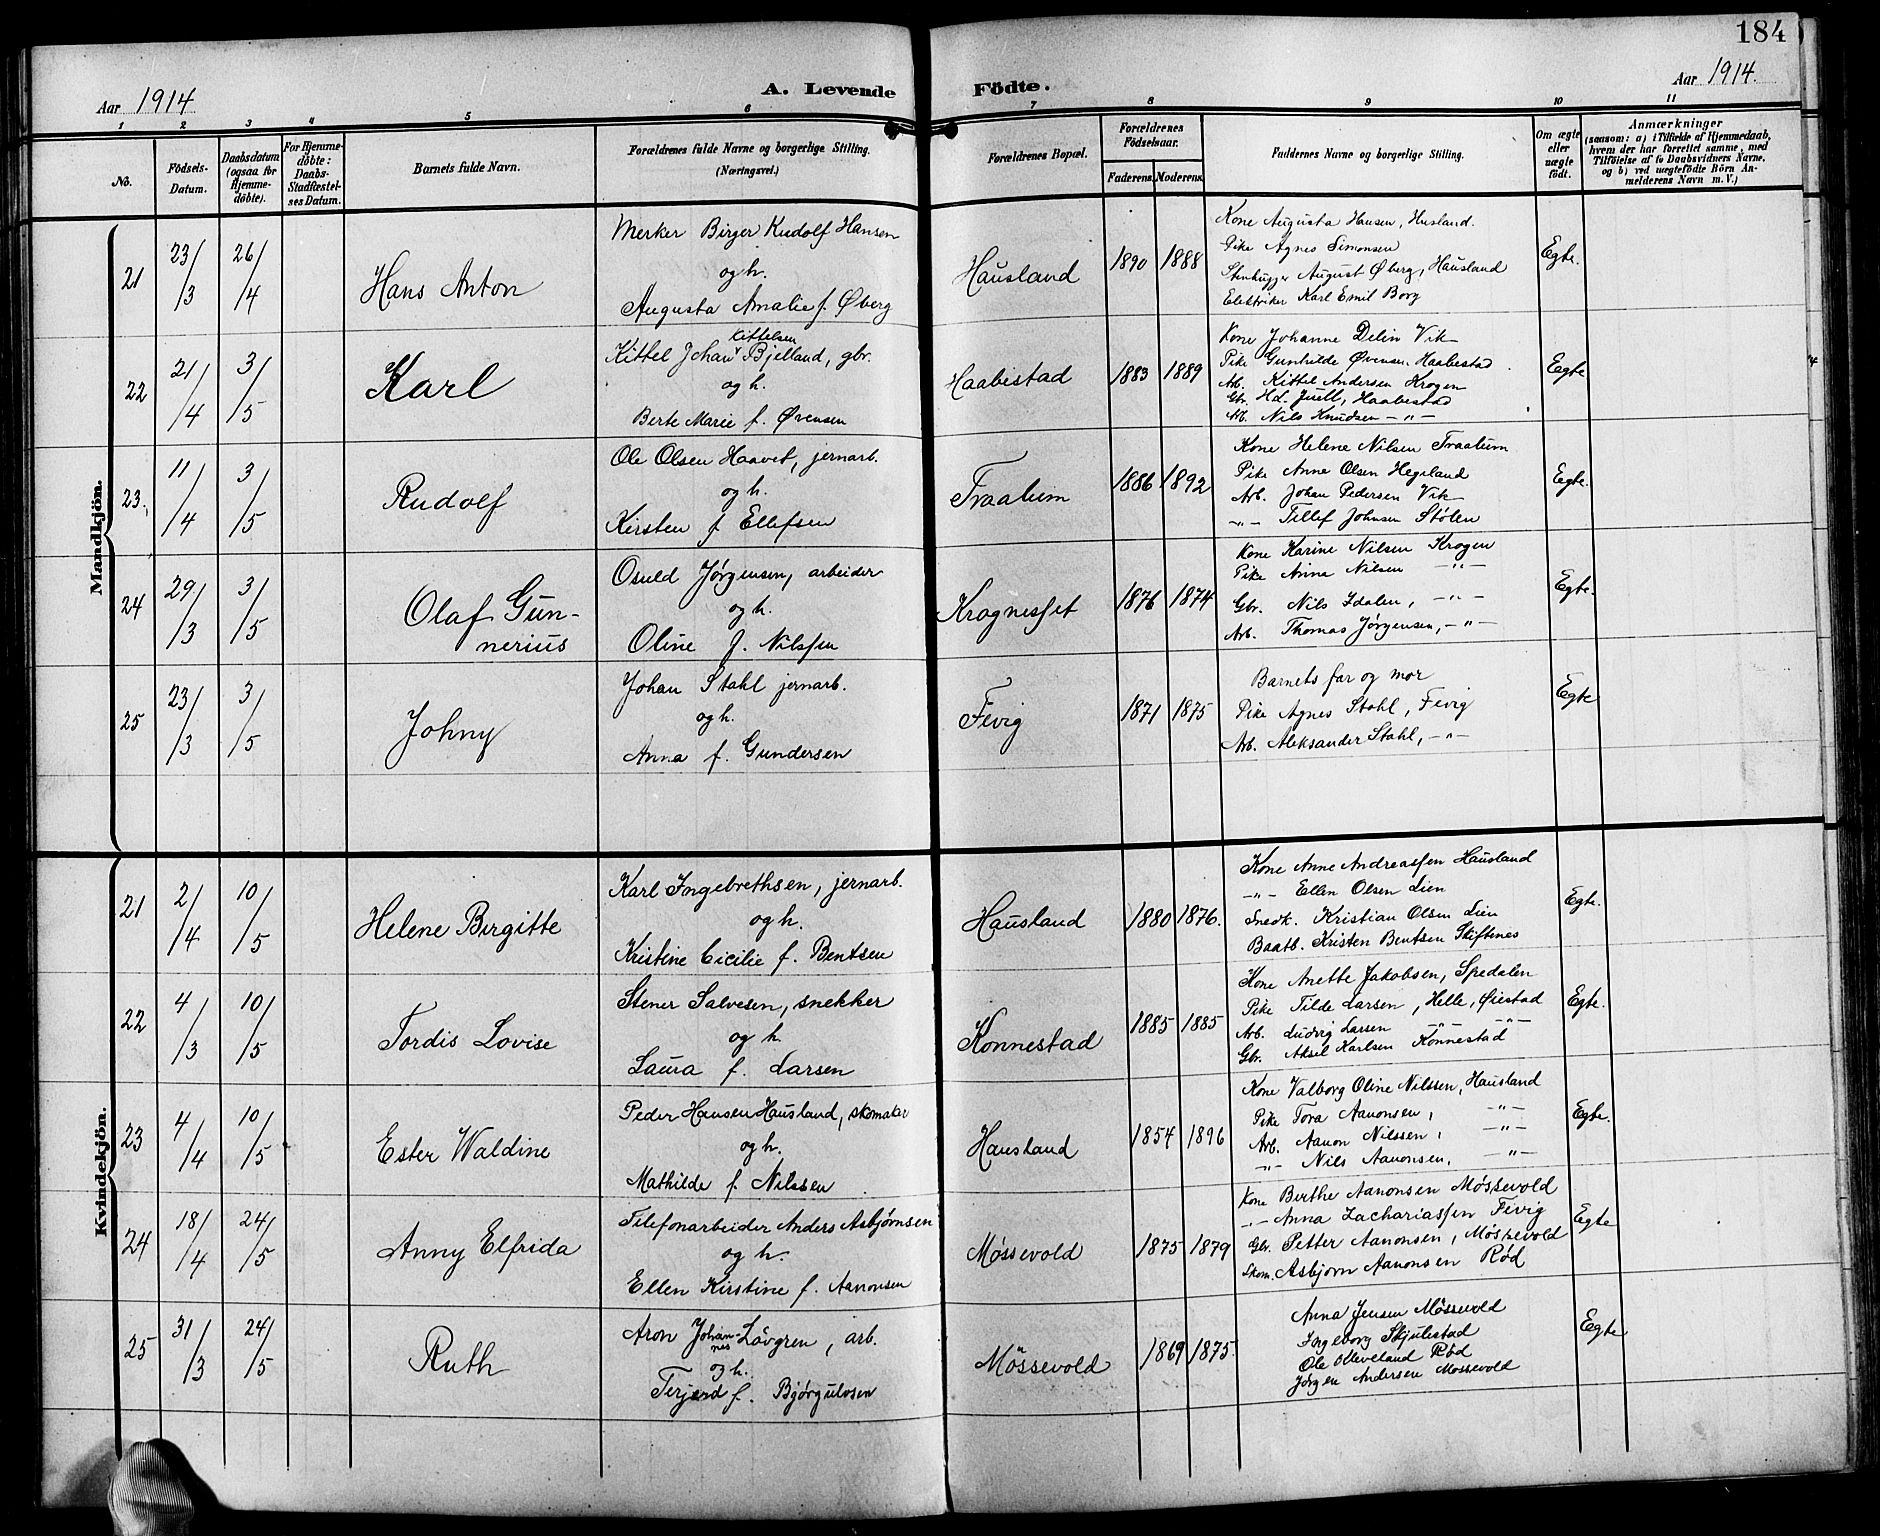 184
Aar 1914.
A. Levende Födte.
Aar 1914.
1 2 3 4 5 6 7 8 9 10 11
No.
Födsels-Datum.
Daabsdatum (ogsaa for Hjemme-döbte).
For Hjemme-döbte: Daabs-Stadfæstel-ses Datum.
Barnets fulde Navn.
Forældrenes fulde Navne og borgerlige Stilling. (Næringsvei.)
Forældrenes Bopæl.
Forældrenes Födselsaar.
Faderens. Moderens.
Faddernes Navne og borgerlige Stilling.
Om ægte eller uægte født.
Anmærkninger
(saasom: a) i Tilfælde af Hjemmedaab, hvem der har forrettet samme, med Tilföielse af to Daabsvidners Navne, og b) ved uægtefödte Börn An-melderens Navn m. V.)
Mandkjön.
21 23/3 26/4 Hans Anton
Merker Birger Rudolf Hansen
og h.
Augusta Amalie f. Øberg
Hausland 1890 1888
Kone Augusta Hansen, Husland.
Pike Agnes Simonsen
Stenhugger August Øberg, Hausland
Elektriker Karl Emil Borg
Egte.
22 21/4 3/5 Karl
Kittelsen
Kittel Johan Bjelland, gbr.
og h.
Berte Marie f. Øvensen
Haabestad 1883 1889
Kone Johanne Delin Vik
Pike Gunhilde Øvensen. Haabestad
Arb. Kittel Andersen Krogen
Gbr. Hd. Juell, Haabestad
Arb. Nils Knudsen -"-
Egte
23. 11/4 3/5 Rudolf
Ole Olsen Haavet, jernarb.
og h.
Kirsten f Ellefsen
Traalum 1886 1892
Kone Helene Nilsen Traalum
Pike Anne Olsen Hegeland
Arb. Johan Pedersen Vik
-"- Tellef Johnsen Stølen
Egte.
24 29/3 3/5 Olaf Gun-
nerius
Osuld Jørgensen, arbeider
og h.
Oline f. Nilssen
Krognesset 1876 1874
Kone Karine Nilsen Krogen
Pike Anna Nilsen -"-
Gbr. Nils Idalen, -"-
Arb. Thomas Jørgensen, -"-
Egte.
25 23/3 3/5 Johny
Johan Stahl jernarb.
og h.
Anna f. Gundersen
Fevig 1871 1875
Barnets far og mor
Pike Agnes Stahl, Fevig
Arb. Aleksander Stahl, -"-
Egte
Kvindekjön.
21 2/4 10/5 Helene Birgitte
Karl Ingebrethsen, jernarb.
og h.
Kristine Cicilie f. Bentsen
Hausland 1880 1876.
Kone Anne Andreassen Hausland
-"- Ellen Olsen Lien
Snedk. Kristian Olsen Lien
Baatb. Kristen Bentsen Skiftenes
Egte.
22 4/3 10/5 Tordis Lovise
Stener Salvesen, snekker
og h.
Laura f. Larsen
Konnestad 1885 1885
Kone Anette Jakobsen, Spedalen
Pike Tilde Larsen, Helle, Øiestad
Arb. Ludvig Larsen -"- -"-
Gbr. Aksel Karlsen Konnestad
Egte.
23 4/4 10/5 Ester Waldine
Peder Hansen Hausland, skomaker
og h.
Mathilde f Nilssen
Hausland 1854 1896
Kone Valborg Oline Nilssen, Hausland
Pike Tora Aanonsen, -"-
Arb. Aanon Nilssen, -"-
-"- Nils Aanonsen, -"-
Egte.
24 18/4 24/5 Anny Elfrida
Telefonarbeider Anders Asbjørnsen
og h.
Ellen Kirstine f. Aanonsen
Møssevold 1875 1879
Kone Berthe Aanonsen Møssevold
-"- Anna Zachariassen Fevig
Gbr. Petter Aanonsen, Møssevold
Skom. Asbjørn Aanonsen Rød
Egte
25 31/3 24/5 Ruth
Aron Johan-nes Lövgren, arb.
og h.
Terjerd f. Bjørgulvsen
Møssevold 1869 1875.
Anna Jensen Møssevold
Ingeborg Skjulestad
Ole Olleveland Rød
Jørgen Andersen Møssevold
Egte